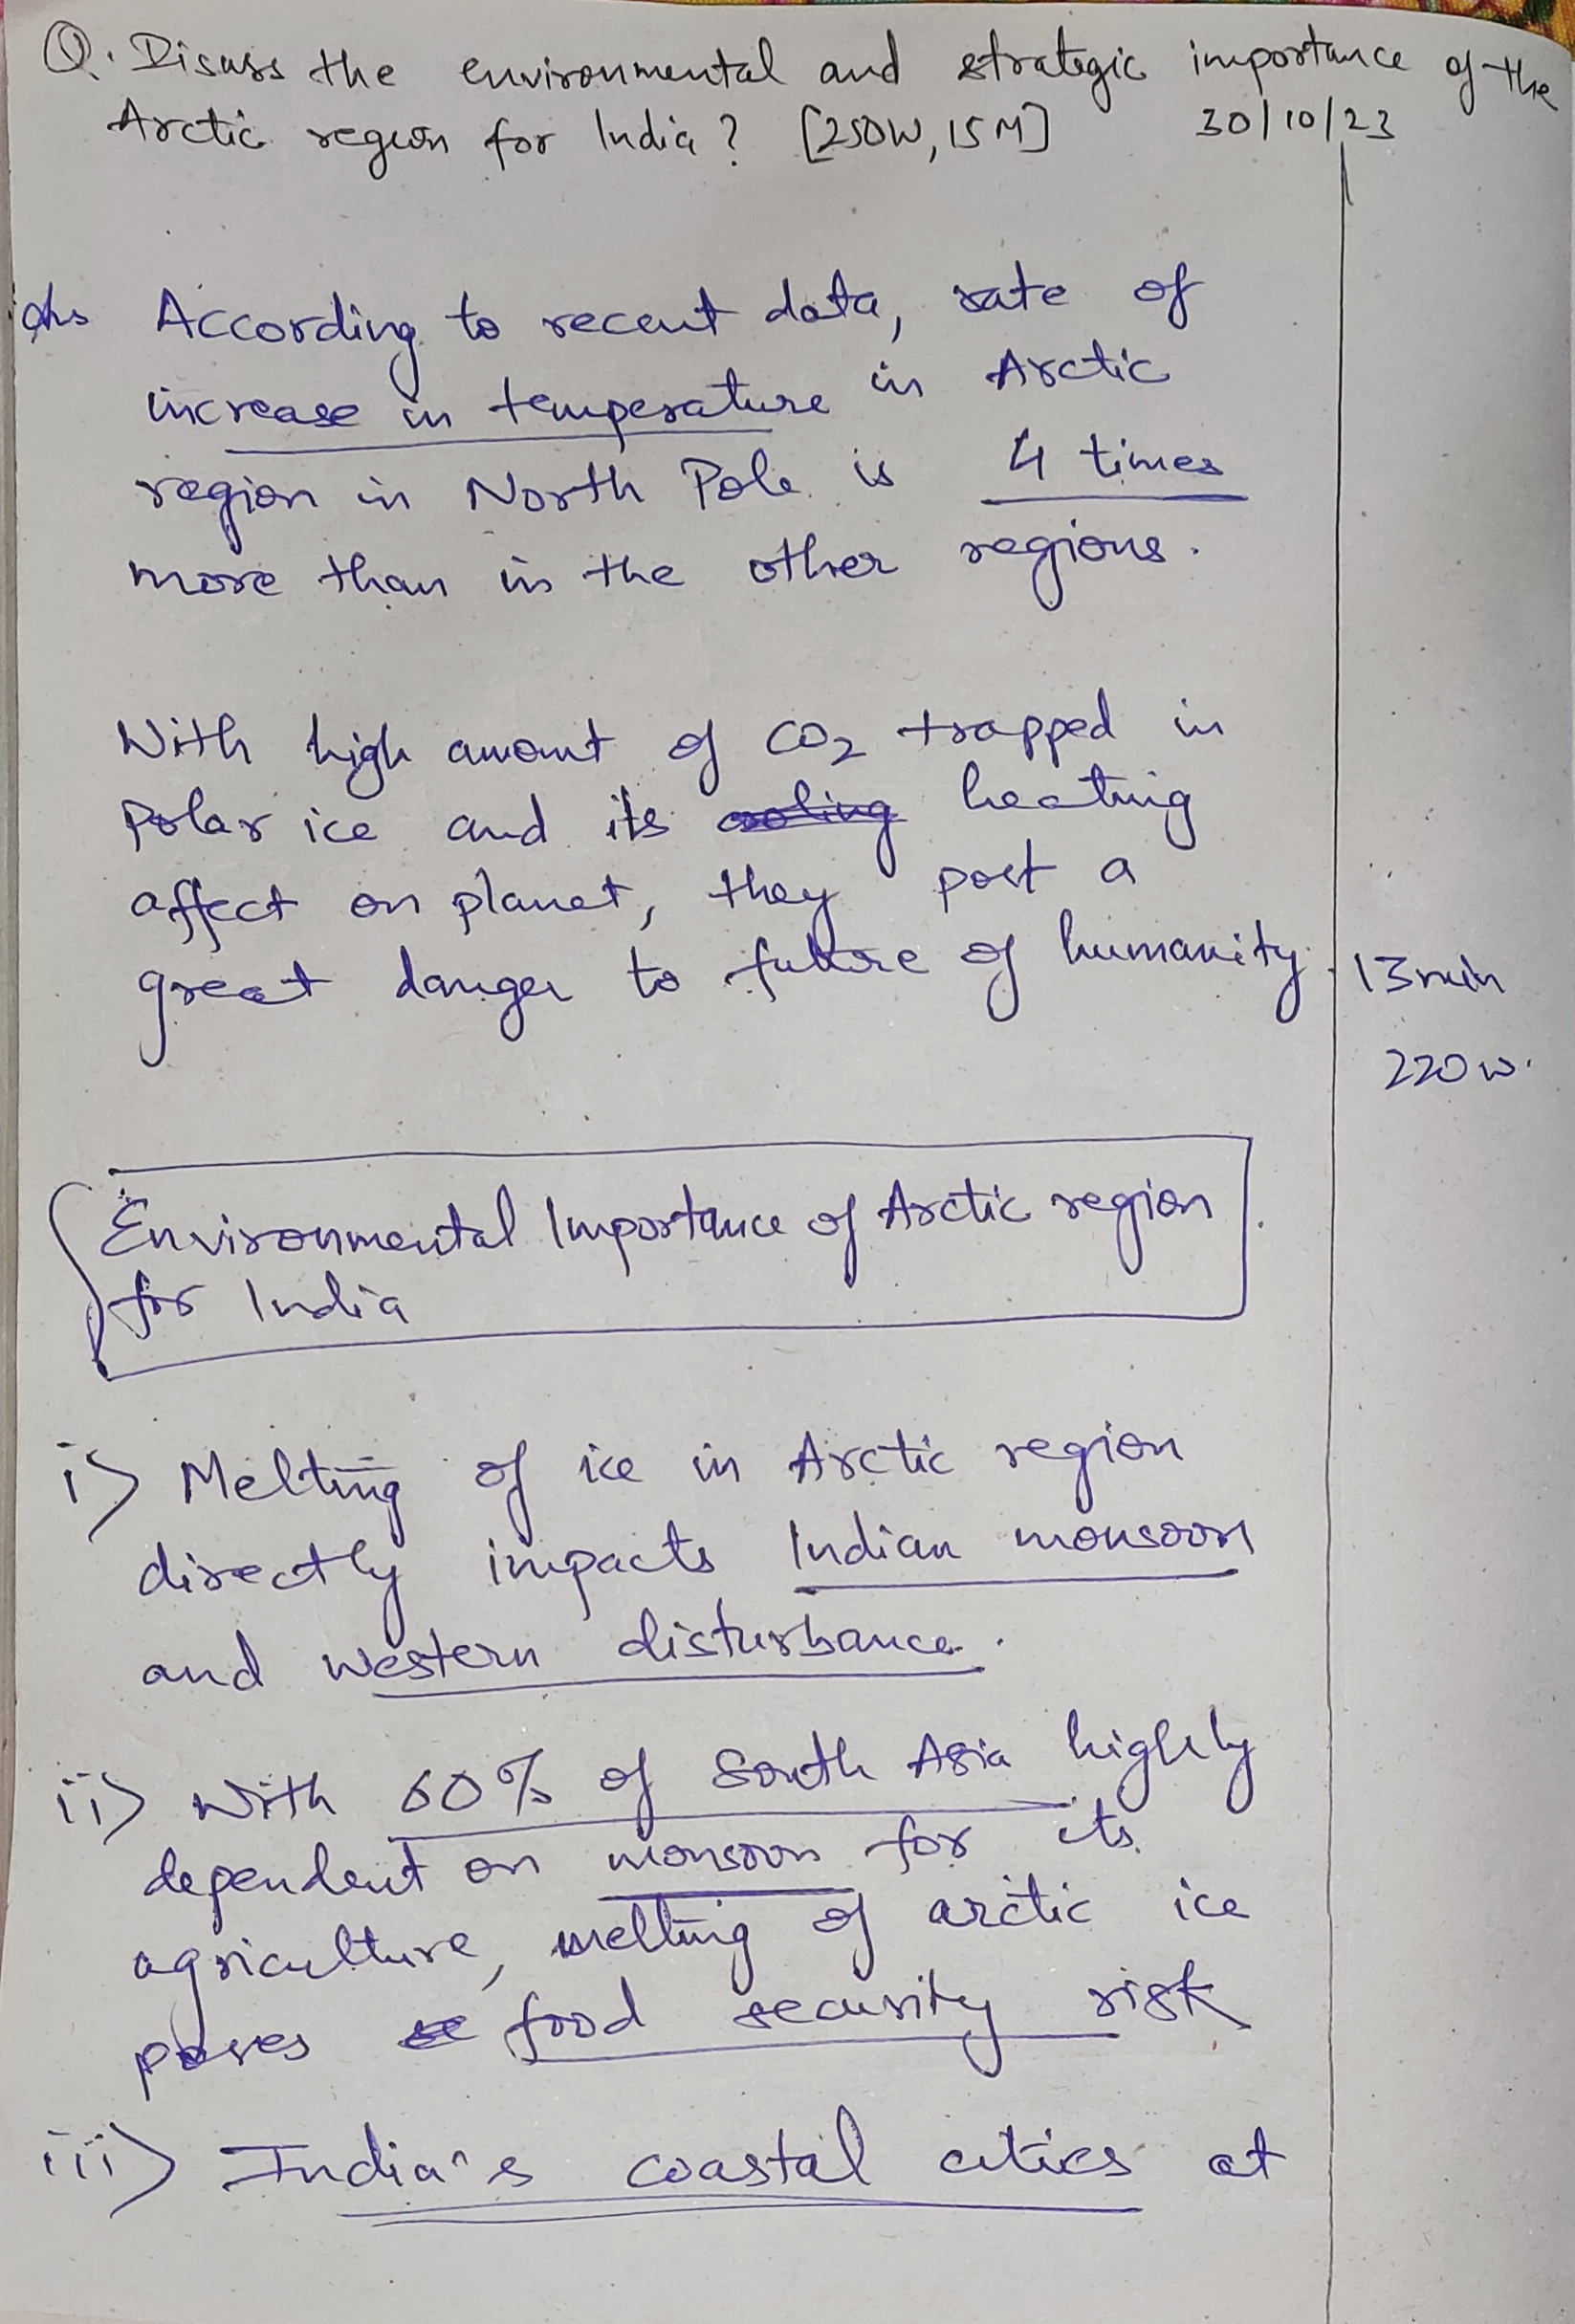 Q. Disuss the environmental and strategic importance of the
Arctic region for India? [250W, 15M] 30/10/23
Ans According to recent data, rate of
increase in temperature in Arctic
region in North Pole is 4 times
more than in the other regions.
With high amount of CO2 trapped in
Polar ice and its cooling heating
affect on planet, they post a
great danger to future of humanity.
13 min
220 w.
Environmental Importance of Arctic region
for India
i) Melting of ice in Arctic region
directly impacts Indian monsoon
and western disturbance.
ii) With 60% of South Asia highly
dependent on monsoon for its
agriculture, melting of arctic ice
poses food security risk
iii) India's coastal cities at